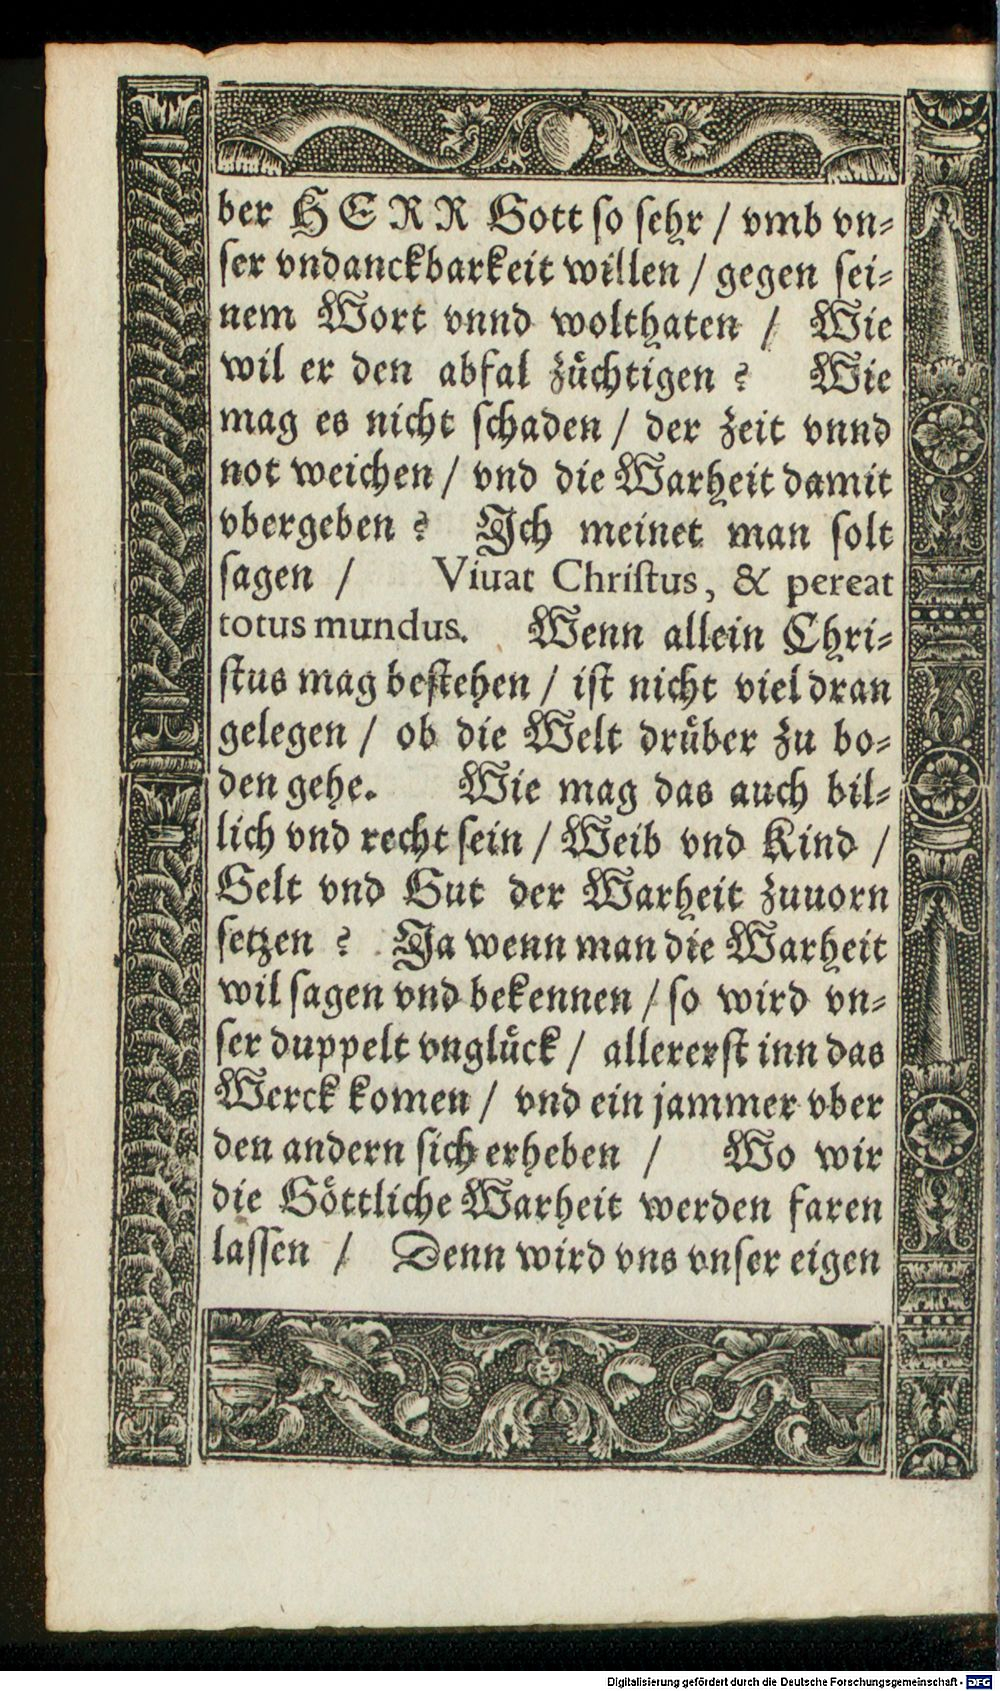 ber HERR Gott so sehr / vmb vn⸗
ser vndanckbarkeit willen / gegen sei⸗
nem Wort vnnd wolthaten / Wie
wil er den abfal züchtigen? Wie
mag es nicht schaden / der zeit vnnd
not weichen / vnd die Warheit damit
vbergeben? Ich meinet man solt
sagen / Viuat Christus, & pereat
totus mundus. Wenn allein Chri⸗
stus mag bestehen / ist nicht viel dran
gelegen / ob die Welt drüber zu bo⸗
den gehe. Wie mag das auch bil⸗
lich vnd recht sein / Weib vnd Kind /
Gelt vnd Gut der Warheit zuuorn
setzen? Ja wenn man die Warheit
wil sagen vnd bekennen / so wird vn⸗
ser duppelt vnglück / allererst inn das
Werck komen / vnd ein jammer vber
den andern sich erheben / Wo wir
die Göttliche Warheit werden faren
lassen / Denn wird vns vnser eigen
Digitalisierung gefördert durch die Deutsche Forschungsgemeinschaft - DFG